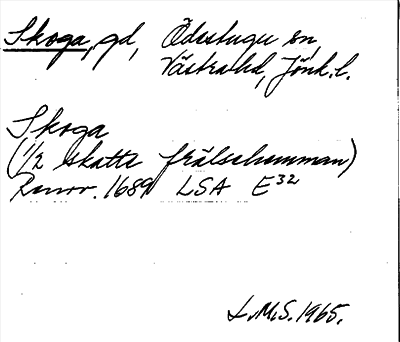 Skoga, gd, Ödestugu sn,
Västra hd, Jönk. l.
Skoga
(1/2 skatte frälsehemman)
Renov. 1689 LSA E32
L.M.S. 1965.